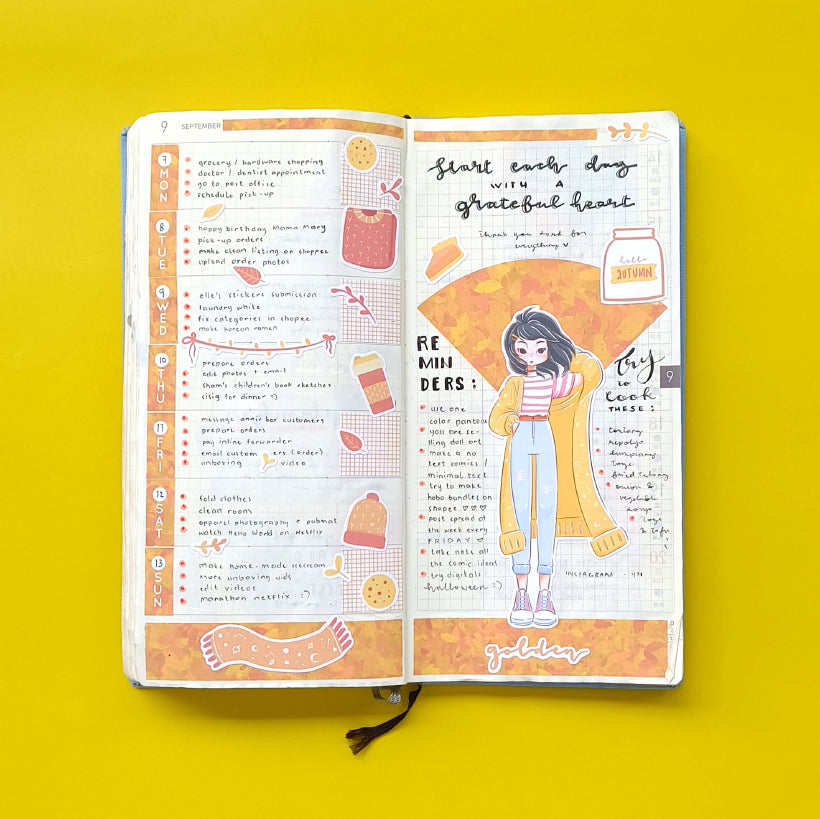 9 SEPTEMBER
7 MON
grocery / hardware shopping
doctor / dentist appointment
go to post office
schedule pick-up
8 TUE
happy birthday Mama Mary
pick-up orders
make clean listing on shoppee
upload order photos
9 WED
elle's stickers submission
laundry white
fix categories in shopee
make korean ramen
10 THU
prepare orders
edit photos + email
sham's children's book sketches
sisig for dinner :)
11 FRI
message annie bar customers
prepare orders
pay inline forwarder
email custom ers (order)
unboxing video
12 SAT
fold clothes
clean room
apparel photography + pubmat
watch Hello World on Netflix
13 SUN
make home-made icecream
more unboxing vids
edit videos
marathon netflix :)
start each day
WITH A
grateful heart
Thank you Lord for
everything
hello
AUTUMN
RE
MIN
DERS:
use one
color pantone
you are se-
lling doll art
make a no
text comics /
minimal text
try to make
hobo bundles on
shopee ♡♡♡
post spread of
the week every
FRIDAY ♡
take note all
the comic ideas
try digital!
halloween :)
try
to
cook
THESE:
9
vegetable
INSTAGRAM
golden